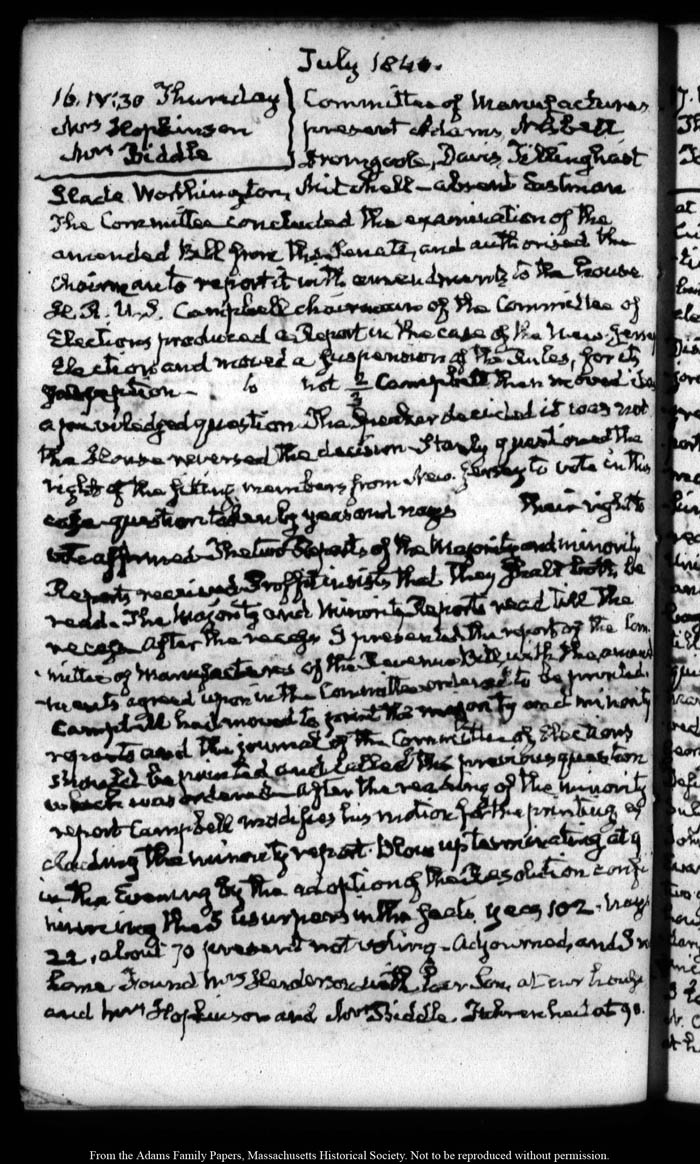 July 1840.
16. IV:30 Thursday
Mrs Hopkinson
Mrs Biddle
Committee of Manufactures
present Adams, Nisbett
Dromgoole, Davis, Tillinghast
Slade Worthington, Mitchell - absent Eastman
The Committee concluded the examination of the
amended Bill from the Senate, and authorised the
Chairman to report it with amendments to the house
H. R. U.S. Campbell chairman of the Committee of
Elections produced a Report in the case of the New-Jersey
Election and moved a suspension of the Rules, for its
- to not 2/3 Campbell then moved
a priviledged question. The Speaker decided it was not
the House reversed the decision - Stanly questioned the
right of the sitting members from New-Jersey to vote in this
case - question taken by yeas and nays Their right to
vote affirmed - The two Reports of the Majority and minority
Reports received. Proffit insists that they shall both be
read - The Majority and Minority Reports read till the
recess - After the recess I presented the report of the Com
mittee of Manufactures of the Revenue Bill, with the amend
ments agreed upon in the Committee ordered to be printed.
Campbell had moved to print the majority and minority
reports and the journal of the Committee of Elections
should be printed and called the previous question
which was ordered - after the reading of the minority
report Campbell modifies his motion for the printing ex
cluding the minority report. Blow up terminating at 9
in the Evening by the adoption of the Resolution confi
the 5 usurpers in the seats, yeas 102. nays
22, about 70 present not voting - Adjourned, and I
home Found Mrs Henderson with her Son, at our house
and Mrs Hopkinson and Mrs Biddle. at 90.
From the Adams Family Papers, Massachusetts Historical Society. Not to be reproduced without permission.